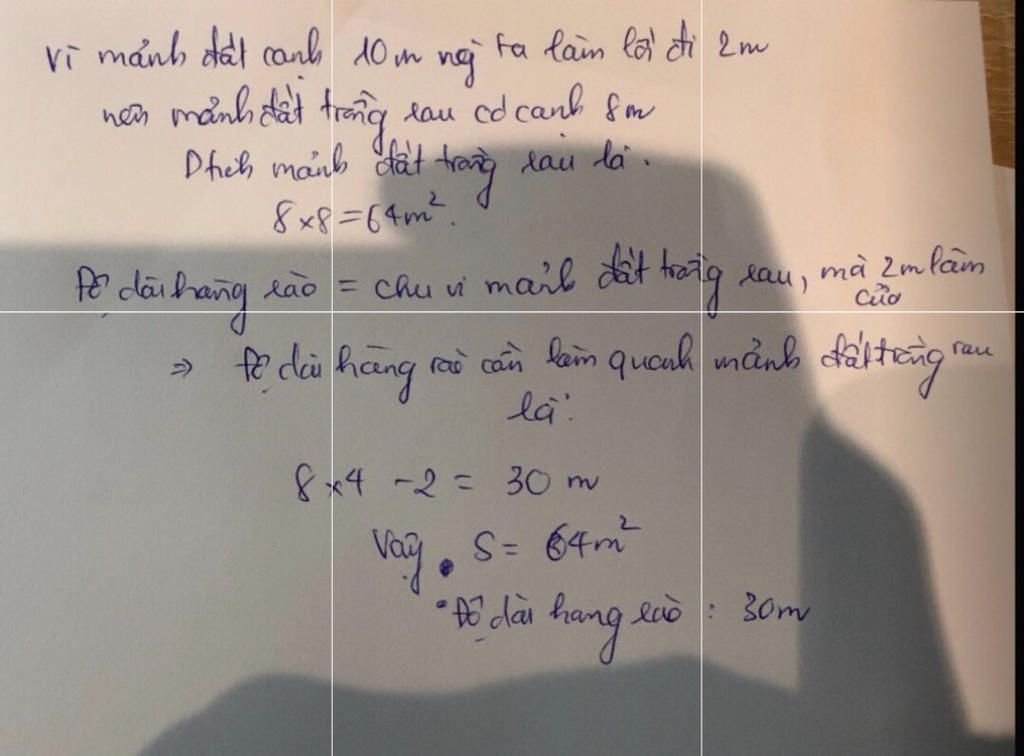 Vì mảnh đất cạnh 10m ng ta làm lối đi 2m
nên mảnh đất trồng rau có cạnh 8m
Dtích mảnh đất trồng rau là.
8 x 8 = 64m².
Độ dài hàng rào = chu vi mảnh đất trồng rau, mà 2m làm
cửa
⇒ Độ dài hàng rào cần làm quanh mảnh đất trồng rau
là:
8 x 4 - 2 = 30 m
Vậy • S = 64m²
• Độ dài hàng rào : 30m